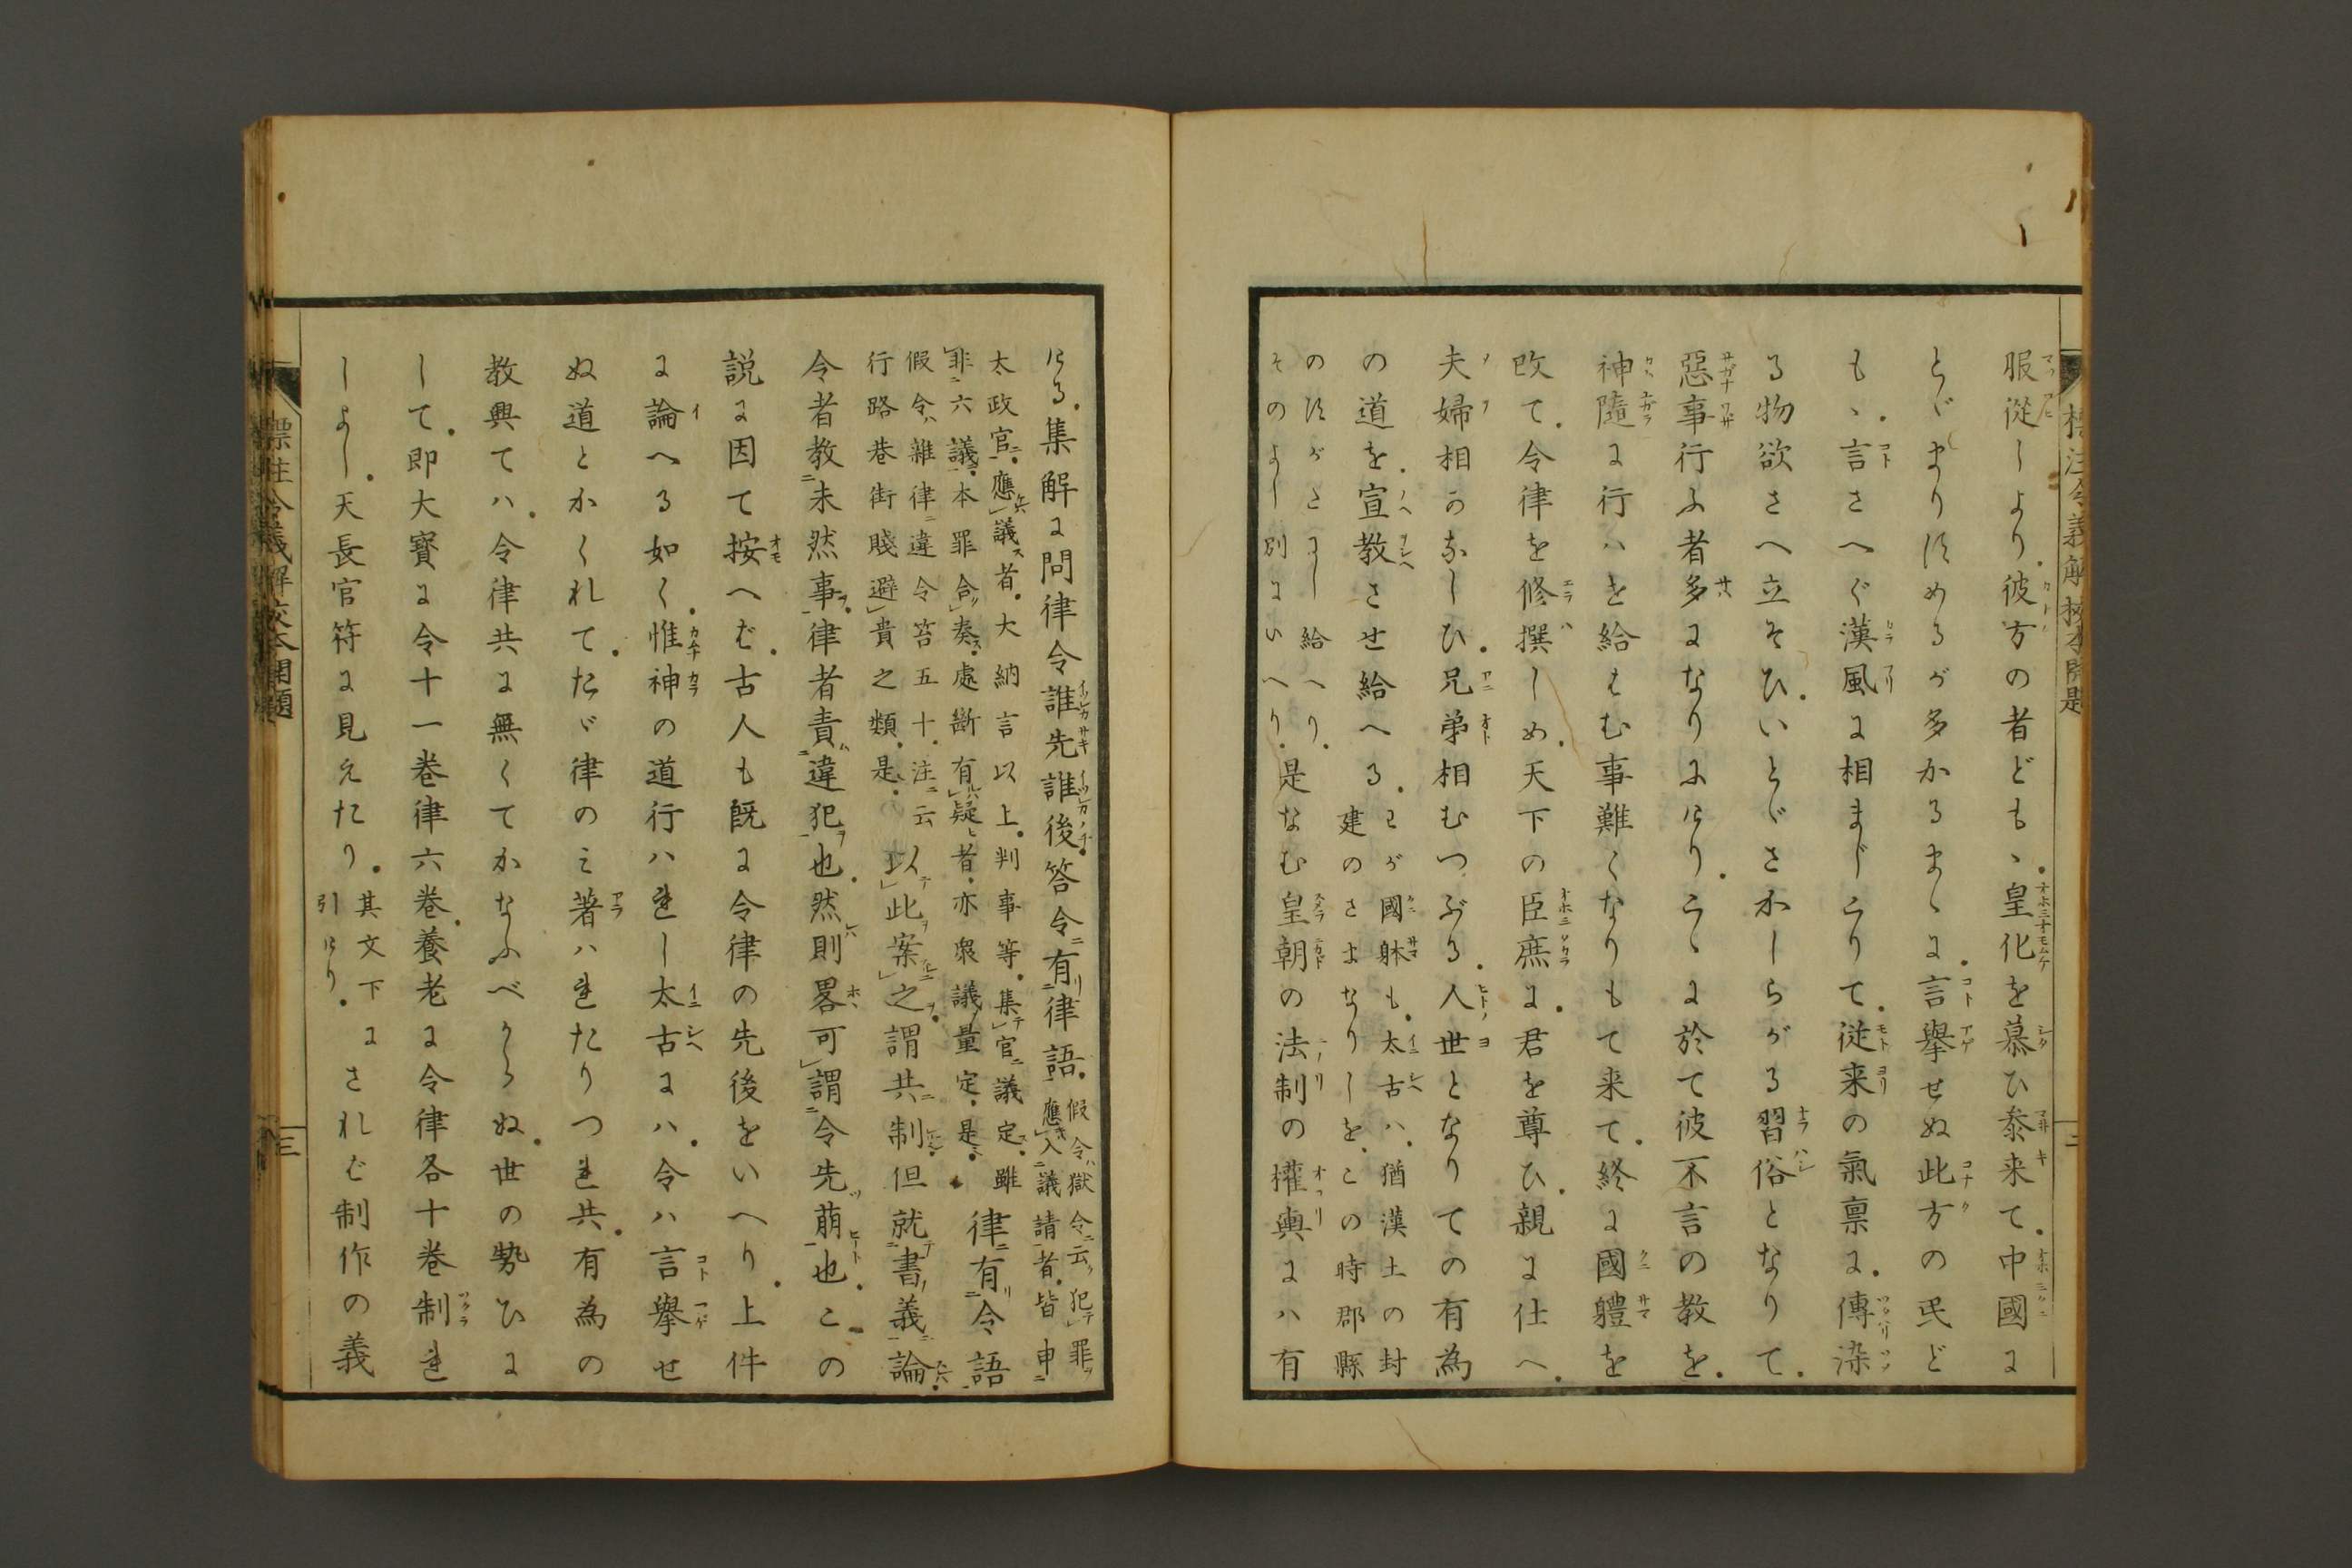 服從しより。彼方の者ども、皇化を慕ひ泰来て。中國に
とゞまり住めるが多かるまゝに。言擧せぬ此方の民ど
も、言さへぐ漢風に相まじこりて。從来の氣稟に。傳染
る物欲さへ立そひ。いとゞさかしらがる習俗となりて。
惡事行ふ者多になりにけり。こゝに於て彼不言の教を。
神隨に行ハせ給はむ事難くなりもて来て。終に國體を
改て。令律を修撰しめ。天下の臣庶に。君を尊ひ。親に仕へ。
夫婦相うなしひ。兄弟相むつぶる。人世となりての有為
の道を。宣教させ給へる。わが國躰も。太古ハ。猶漢土の封
建のさまなりしを。この時郡縣
のすがたにし給へり。
そのよし別にいへり。是なむ皇朝の法制の權輿にハ有
ける。集解に問律令誰先誰後答令有律語。假令獄令云犯罪
應入議請者。皆申
太政官。應議者。大納言以上。判事等。集官議定。雖
非六議。本罪合奏。處斷有疑者。亦衆議量定。是。律有令語
假令雜律違令笞五十。注云
行路巷街賤避貴之類。是。以此案之。謂共制。但就書義論
令者教未然事。律者責違犯也。然則畧可謂令先萠也。この
説に因て按へば。古人も既に令律の先後をいへり。上件
に論へる如く。惟神の道行ハれし太古にハ。令ハ言擧せ
ぬ道とかくれて。たゞ律のミ著ハれたりつれ共。有為の
教興てハ。令律共に無くてかなふべからぬ。世の勢ひに
して。即大寳に令十一卷律六卷。養老に令律各十卷制れ
しよし。天長官符に見えたり。其文下に
引けり。されば制作の義
標注令義解校本開題
三